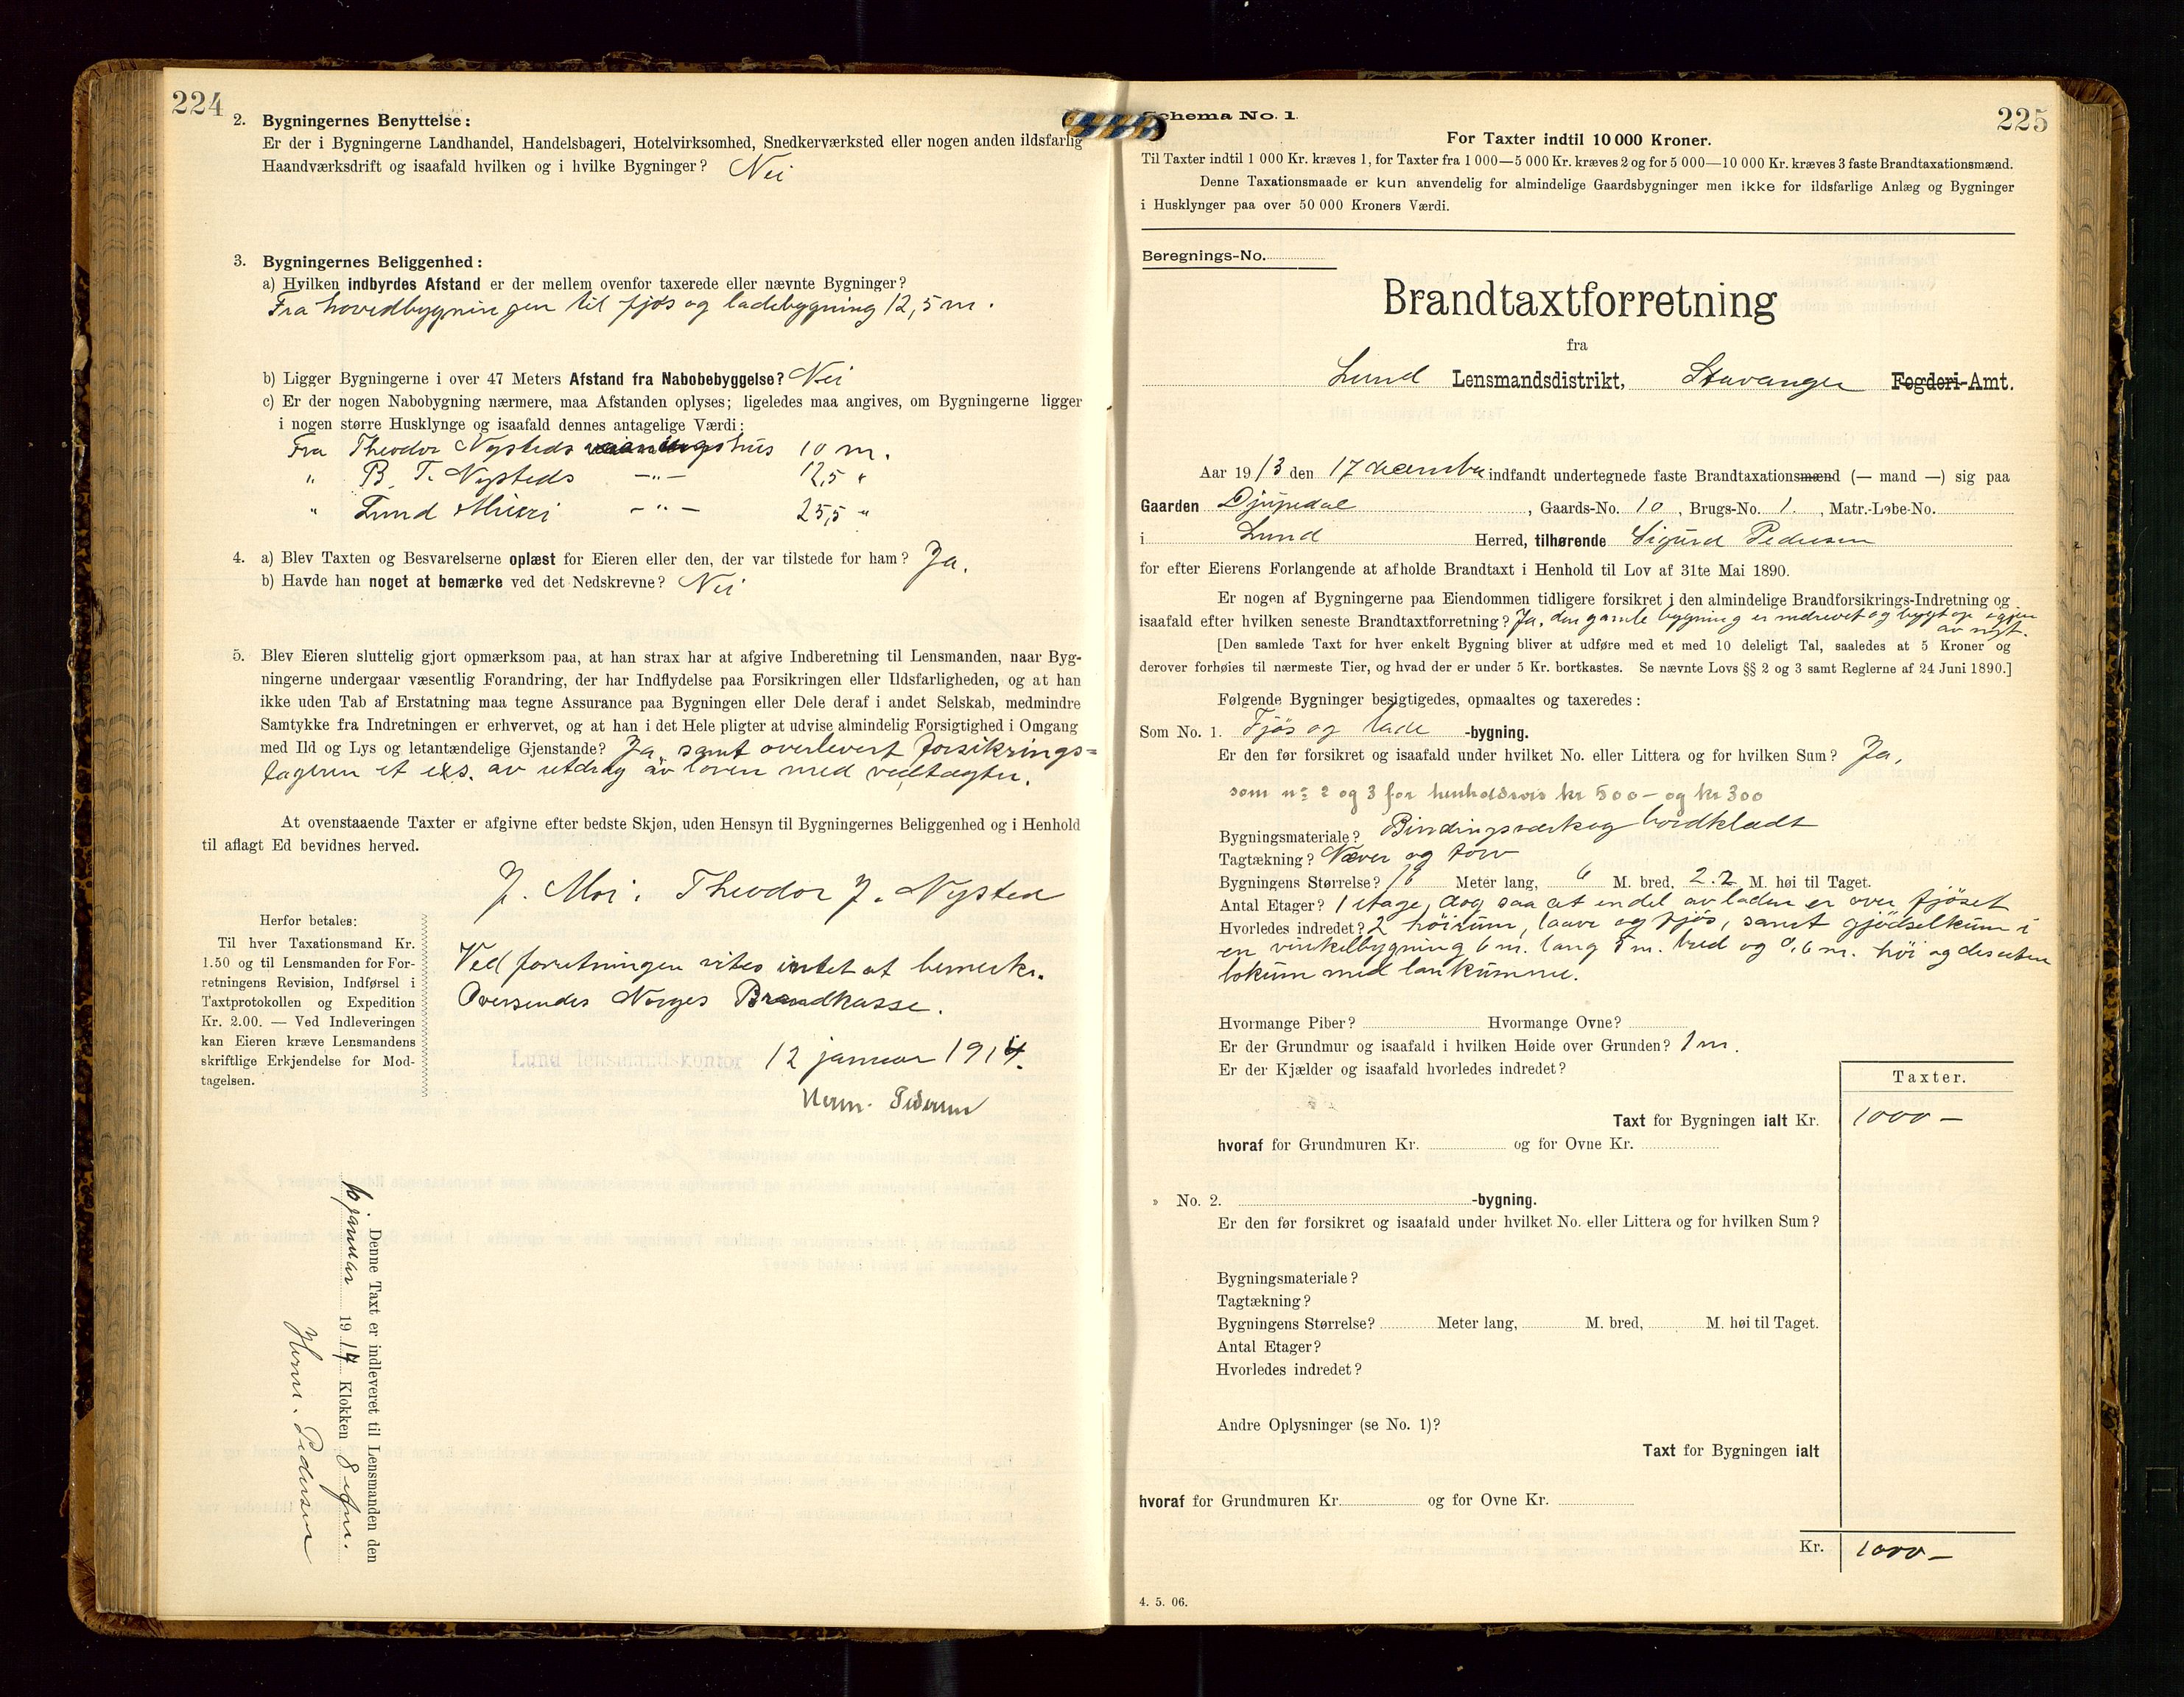 224
2. Bygningernes Benyttelse:
Er der i Bygningerne Landhandel, Handelsbageri, Hotelvirksomhed, Snedkerværksted eller nogen anden ildsfarlig
Haandværksdrift og isaafald hvilken og i hvilke Bygninger? Nei
3. Bygningernes Beliggenhed:
a) Hvilken indbyrdes Afstand er der mellem ovenfor taxerede eller nævnte Bygninger?
Fra hovedbygningen til fjøs og ladebygning 12,5 m.
b) Ligger Bygningerne i over 47 Meters Afstand fra Nabobebyggelse? Nei
c) Er der nogen Nabobygning nærmere, maa Afstanden oplyses; ligeledes maa angives, om Bygningerne ligger
i nogen større Husklynge og isaafald dennes antagelige Værdi:
Fra Theodor Nysteds vaaningshus 10 m.
" B. T. Nysteds -"- 12,5 "
" Lund -"- 25,5 "
4. a) Blev Taxten og Besvarelserne oplæst for Eieren eller den, der var tilstede for ham? Ja.
b) Havde han noget at bemærke ved det Nedskrevne? Nei
5. Blev Eieren sluttelig gjort opmærksom paa, at han strax har at afgive Indberetning til Lensmanden, naar Byg-
ningerne undergaar væsentlig Forandring, der har Indflydelse paa Forsikringen eller Ildsfarligheden, og at han
ikke uden Tab af Erstatning maa tegne Assurance paa Bygningen eller Dele deraf i andet Selskab, medmindre
Samtykke fra Indretningen er erhvervet, og at han i det Hele pligter at udvise almindelig Forsigtighed i Omgang
med Ild og Lys og letantændelige Gjenstande? Ja, samt overlevert forsikrings-
tageren et eks. av utdrag av loven med vedtægter.
At ovenstaaende Taxter er afgivne efter bedste Skjøn, uden Hensyn til Bygningernes Beliggenhed og i Henhold
til aflagt Ed bevidnes herved.
J. Moi. Theodor J. Nysted
Herfor betales:
Til hver Taxationsmand Kr.
1.50 og til Lensmanden for For-
retningens Revision, Indførsel i
Taxtprotokollen og Expedition
Kr. 2.00. — Ved Indleveringen
kan Eieren kræve Lensmandens
skriftlige Erkjendelse for Mod-
tagelsen.
Ved forretningen vites intet at bemerke.
Oversendes Norges Brandkasse.
Lund lensmandskontor 12 januar 1914.
Herm. Pedersen
Denne Taxt er indleveret til Lensmanden den
10 januar 1914 Klokken 8 efm.
Herm. Pedersen
Schema No. 1.
225
For Taxter indtil 10 000 Kroner.
Til Taxter indtil 1 000 Kr. kræves 1, for Taxter fra 1 000—5 000 Kr. kræves 2 og for 5 000—10 000 Kr. kræves 3 faste Brandtaxationsmænd.
Denne Taxationsmaade er kun anvendelig for almindelige Gaardsbygninger men ikke for ildsfarlige Anlæg og Bygninger
i Husklynger paa over 50 000 Kroners Værdi.
Beregnings-No.
Brandtaxtforretning
fra
Lund Lensmandsdistrikt, Stavanger Fogderi-Amt.
Aar 1913 den 17 december indfandt undertegnede faste Brandtaxationsmænd (— mand —) sig paa
Gaarden Djupedal, Gaards-No. 10, Brugs-No. 1., Matr.-Løbe-No.
i Lund Herred, tilhørende Sigurd Pedersen
for efter Eierens Forlangende at afholde Brandtaxt i Henhold til Lov af 31te Mai 1890.
Er nogen af Bygningerne paa Eiendommen tidligere forsikret i den almindelige Brandforsikrings-Indretning og
isaafald efter hvilken seneste Brandtaxtforretning? Ja, den gamle bygning er nedrevet og bygt op igjen
av nyt.
[Den samlede Taxt for hver enkelt Bygning bliver at udføre med et med 10 deleligt Tal, saaledes at 5 Kroner og
derover forhøies til nærmeste Tier, og hvad der er under 5 Kr. bortkastes. Se nævnte Lovs §§ 2 og 3 samt Reglerne af 24 Juni 1890.]
Følgende Bygninger besigtigedes, opmaaltes og taxeredes:
Som No. 1. Fjøs og lade -bygning.
Er den før forsikret og isaafald under hvilket No. eller Littera og for hvilken Sum? Ja,
som no 2 og 3 for henholdsvis kr 500- og kr 300
Bygningsmateriale? Bindingsverk og bordklædt
Tagtækning? Næver og torv
Bygningens Størrelse? 18 Meter lang, 6 M. bred, 2.2 M. høi til Taget.
Antal Etager? 1 etage, dog saa at en del av laden er over fjøset
Hvorledes indredet? 2 høirum, laave og fjøs, samt gjødselkum i
en vinkelbygning 6 m. lang 5 m. bred og 2,6 m. høi og desuten
lokum med lankumme.
Hvormange Piber? Hvormange Ovne?
Er der Grundmur og isaafald i hvilken Høide over Grunden? 1 m.
Er der Kjælder og isaafald hvorledes indredet?
Taxter.
Taxt for Bygningen ialt Kr. 1000 —
hvoraf for Grundmuren Kr. og for Ovne Kr.
» No. 2. -bygning.
Er den før forsikret og isaafald under hvilket No. eller Littera og for hvilken Sum?
Bygningsmateriale?
Tagtækning?
Bygningens Størrelse? Meter lang, M. bred, M. høi til Taget.
Antal Etager?
Hvorledes indredet?
Andre Oplysninger (se No. 1)?
Taxt for Bygningen ialt
hvoraf for Grundmuren Kr. og for Ovne Kr.
Kr. 1000 —
4. 5. 06.